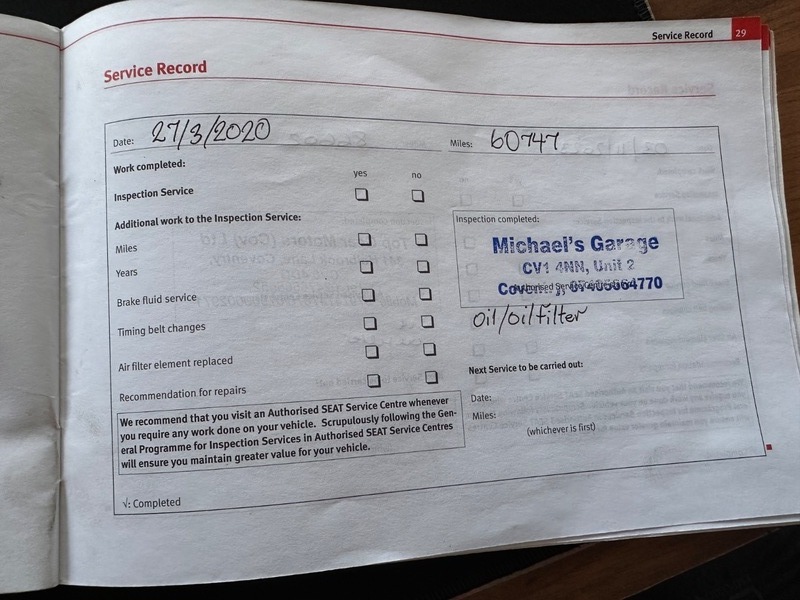 Service Record 29
Service Record
Date: 27/3/2020 Miles: 60747
Work completed:
yes no
Inspection Service
Additional work to the Inspection Service:
Miles
Years
Brake fluid service
Timing belt changes
Air filter element replaced
Recommendation for repairs
Inspection completed:
Michael's Garage
CV1 4NN, Unit 2
Authorised Service Centre
oil/oil filter
Next Service to be carried out:
Date:
Miles:
(whichever is first)
We recommend that you visit an Authorised SEAT Service Centre whenever
you require any work done on your vehicle. Scrupulously following the Gen-
eral Programme for Inspection Services in Authorised SEAT Service Centres
will ensure you maintain greater value for your vehicle.
√: Completed